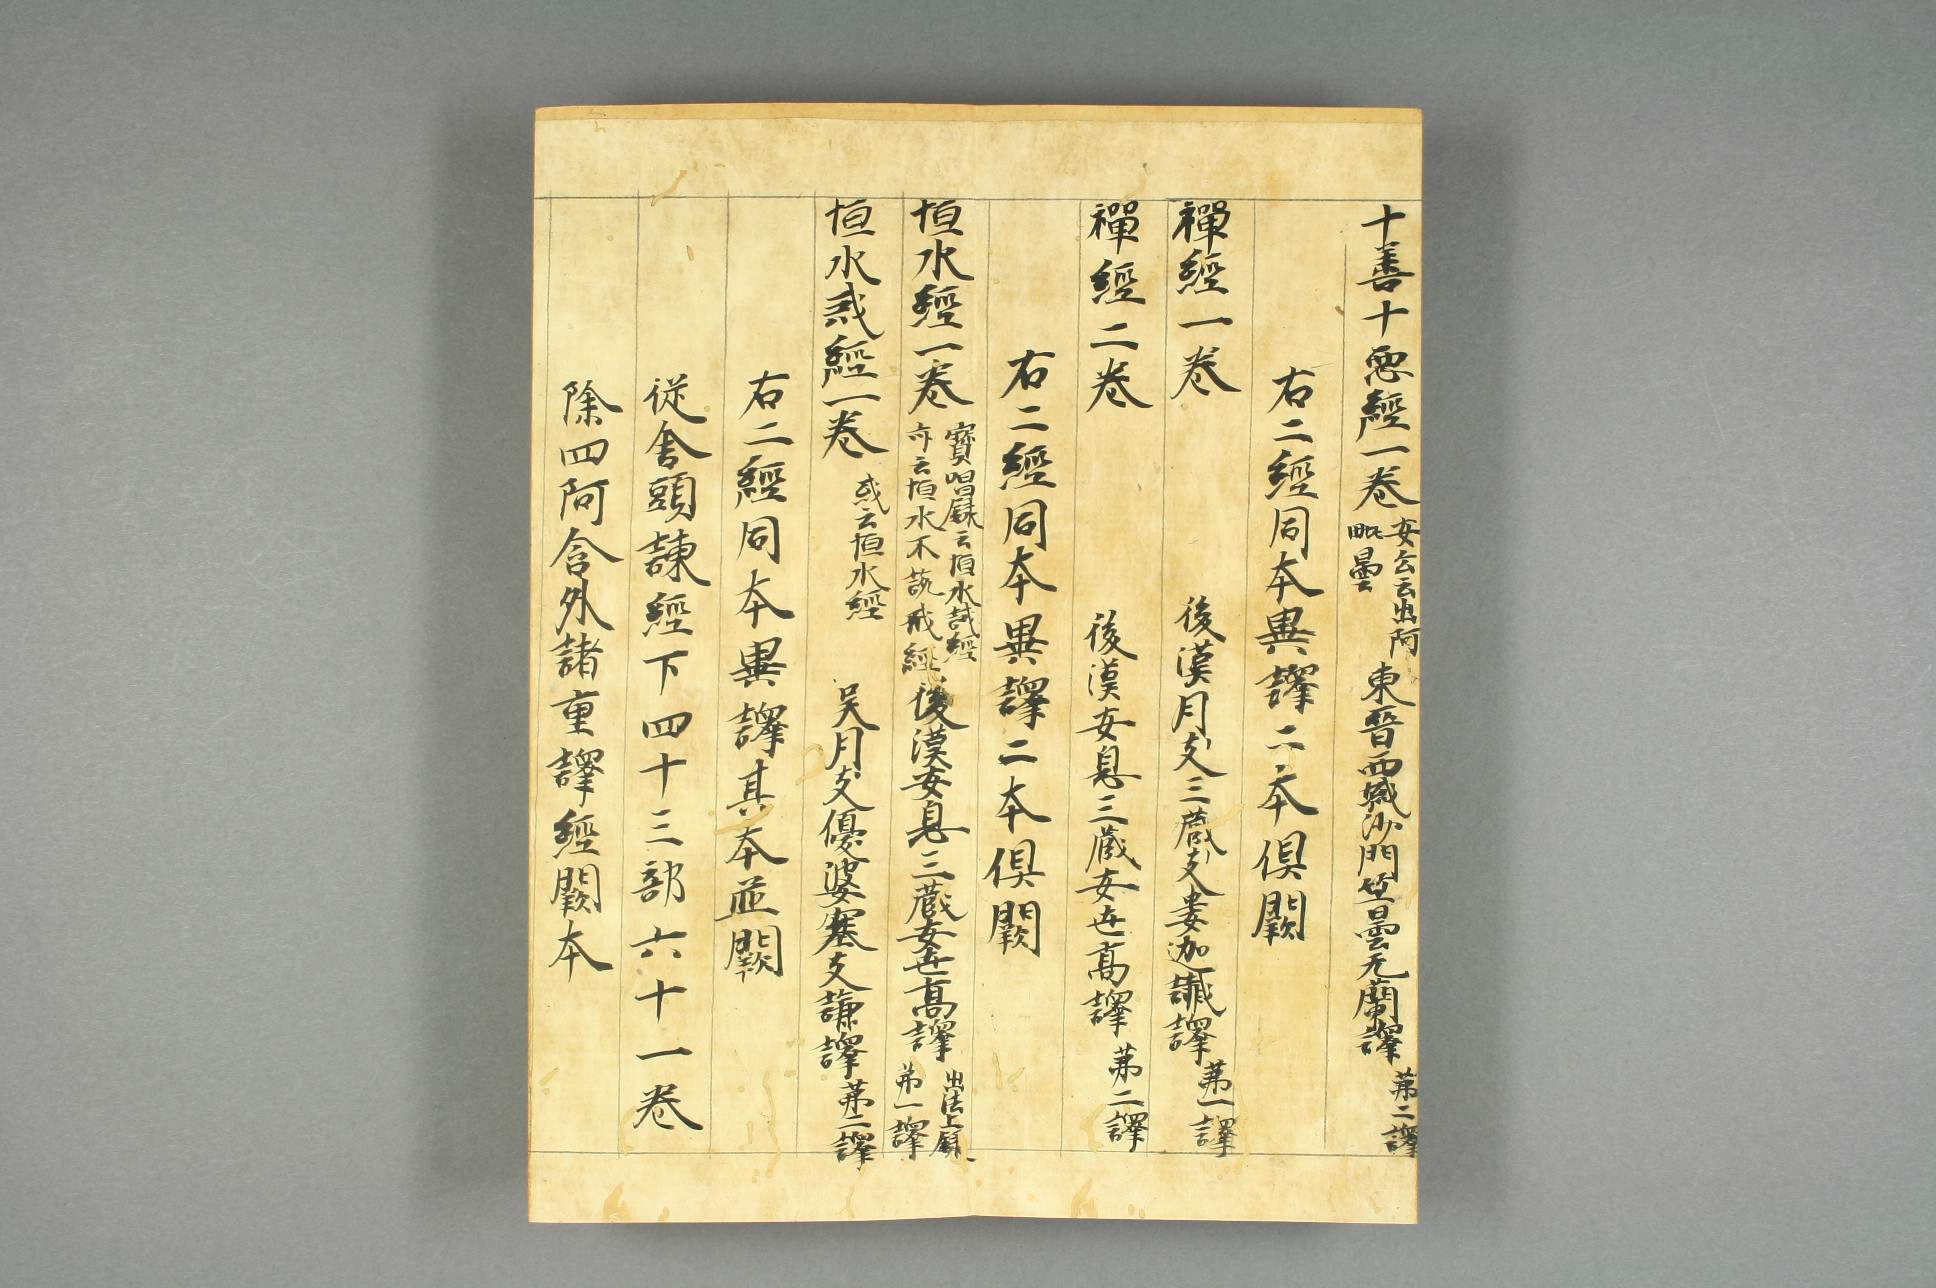 十善十惡經一卷 安公云出阿毗曇 東晉西域沙門竺曇无蘭譯 苐二譯
右二經同本異譯二本俱闕
禪經一卷 後漢月支三藏支婁迦讖譯 苐一譯
禪經二卷 後漢安息三藏安世高譯 苐二譯
右二經同本異譯二本俱闕
恒水經一卷 寶唱錄云恒水誡經亦云恒水不說戒經 後漢安息三藏安世高譯 出法上錄苐一譯
恒水戒經一卷 或云恒水經 吴月支優婆塞支謙譯 苐二譯
右二經同本異譯其本並闕
從舍頭諫經下四十三部六十一卷
除四阿含外諸重譯經闕本